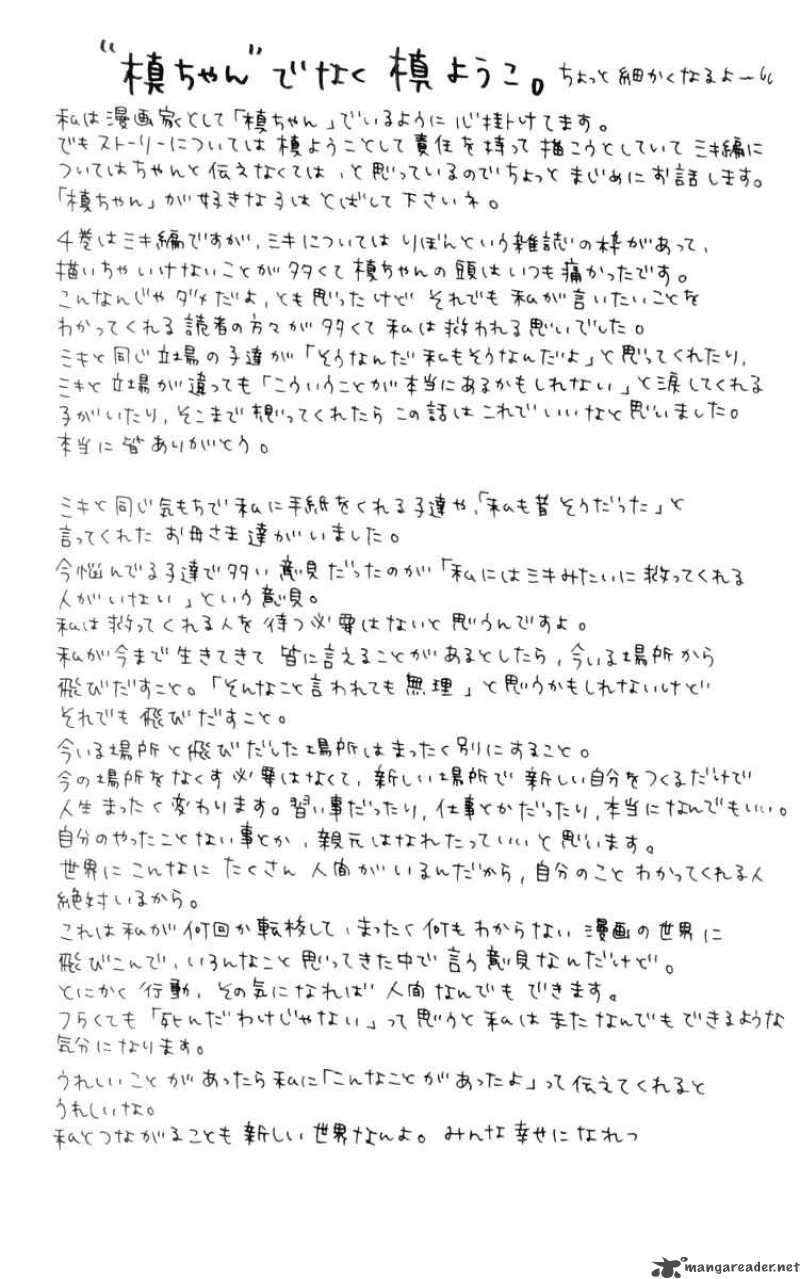 “槙ちゃん”でなく 槙ようこ。 ちょっと細かくなるよー
私は漫画家として「槙ちゃん」でいるように心掛けてます。
でもストーリーについては 槙ようことして責任を持って描こうとしていて ミキ編に
ついてはちゃんと伝えなくては、と思っているのでちょっとまじめにお話します。
「槙ちゃん」が好きな子はとばして下さいネ。
4巻はミキ編ですが、ミキについては りぼんという雑誌の枠があって、
描いちゃいけないことが多くて 槙ちゃんの頭はいつも痛かったです。
こんなんじゃダメだよ、とも思ったけど それでも私が言いたいことを
わかってくれる読者の方々が多くて私は救われる思いでした。
ミキと同じ立場の子達が「そうなんだ 私もそうなんだよ」と思ってくれたり、
ミキと立場が違っても「こういうことが本当にあるかもしれない」と涙してくれる
子がいたり、そこまで想ってくれたら この話はこれでいいなと思いました。
本当に皆ありがとう。
ミキと同じ気もちで私に手紙をくれる子達や、「私も昔そうだった」と
言ってくれた お母さま達がいました。
今悩んでる子達で多い意見だったのが「私にはミキみたいに救ってくれる
人がいない」という意見。
私は救ってくれる人を待つ必要はないと思うんですよ。
私が今まで生きてきて 皆に言えることがあるとしたら、今いる場所から
飛びだすこと。「そんなこと言われても無理」と思うかもしれないけど
それでも飛びだすこと。
今いる場所と飛びだした場所はまったく別にすること。
今の場所をなくす必要はなくて、新しい場所で新しい自分をつくるだけで
人生まったく変わります。習い事だったり、仕事とかだったり、本当になんでもいい。
自分のやったことない事とか、親元はなれたっていいと思います。
世界にこんなに たくさん 人間がいるんだから、自分のことわかってくれる人
絶対いるから。
これは私が何回か転校して、まったく何もわからない 漫画の世界に
飛びこんで、いろんなこと思ってきた中で言う意見なんだけど。
とにかく行動、その気になれば 人間なんでもできます。
つらくても「死んだわけじゃない」って思うと私は またなんでもできるような
気分になります。
うれしいことがあったら私に「こんなことがあったよ」って伝えてくれると
うれしいな。
私とつながることも新しい世界なんよ。 みんな幸せになれっ
mangareader.net